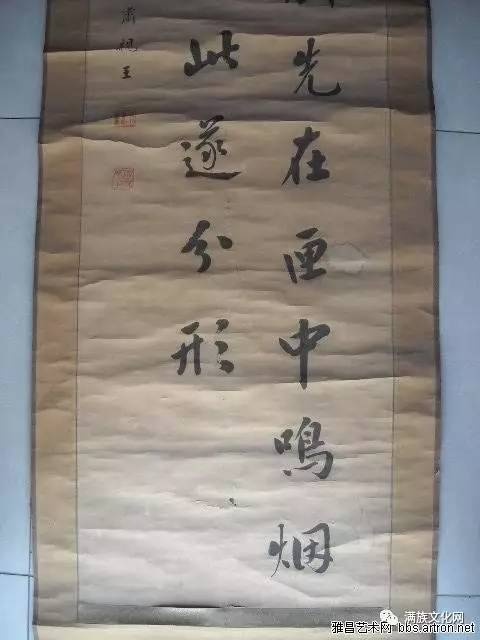 先在匣中鳴烟
此遂分形
肅親王
满族文化网
雅昌艺术网 bbs.artron.net